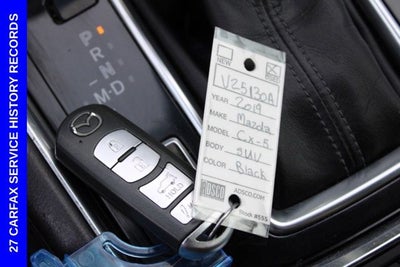 27 CARFAX SERVICE HISTORY RECORDS
P
R
N
M-D
NEW
USED
V25130A
YEAR 2019
MAKE Mazda
MODEL CX-5
BODY SUV
COLOR Black
ADSCO ADSCO.COM
Stock #555
HOLD